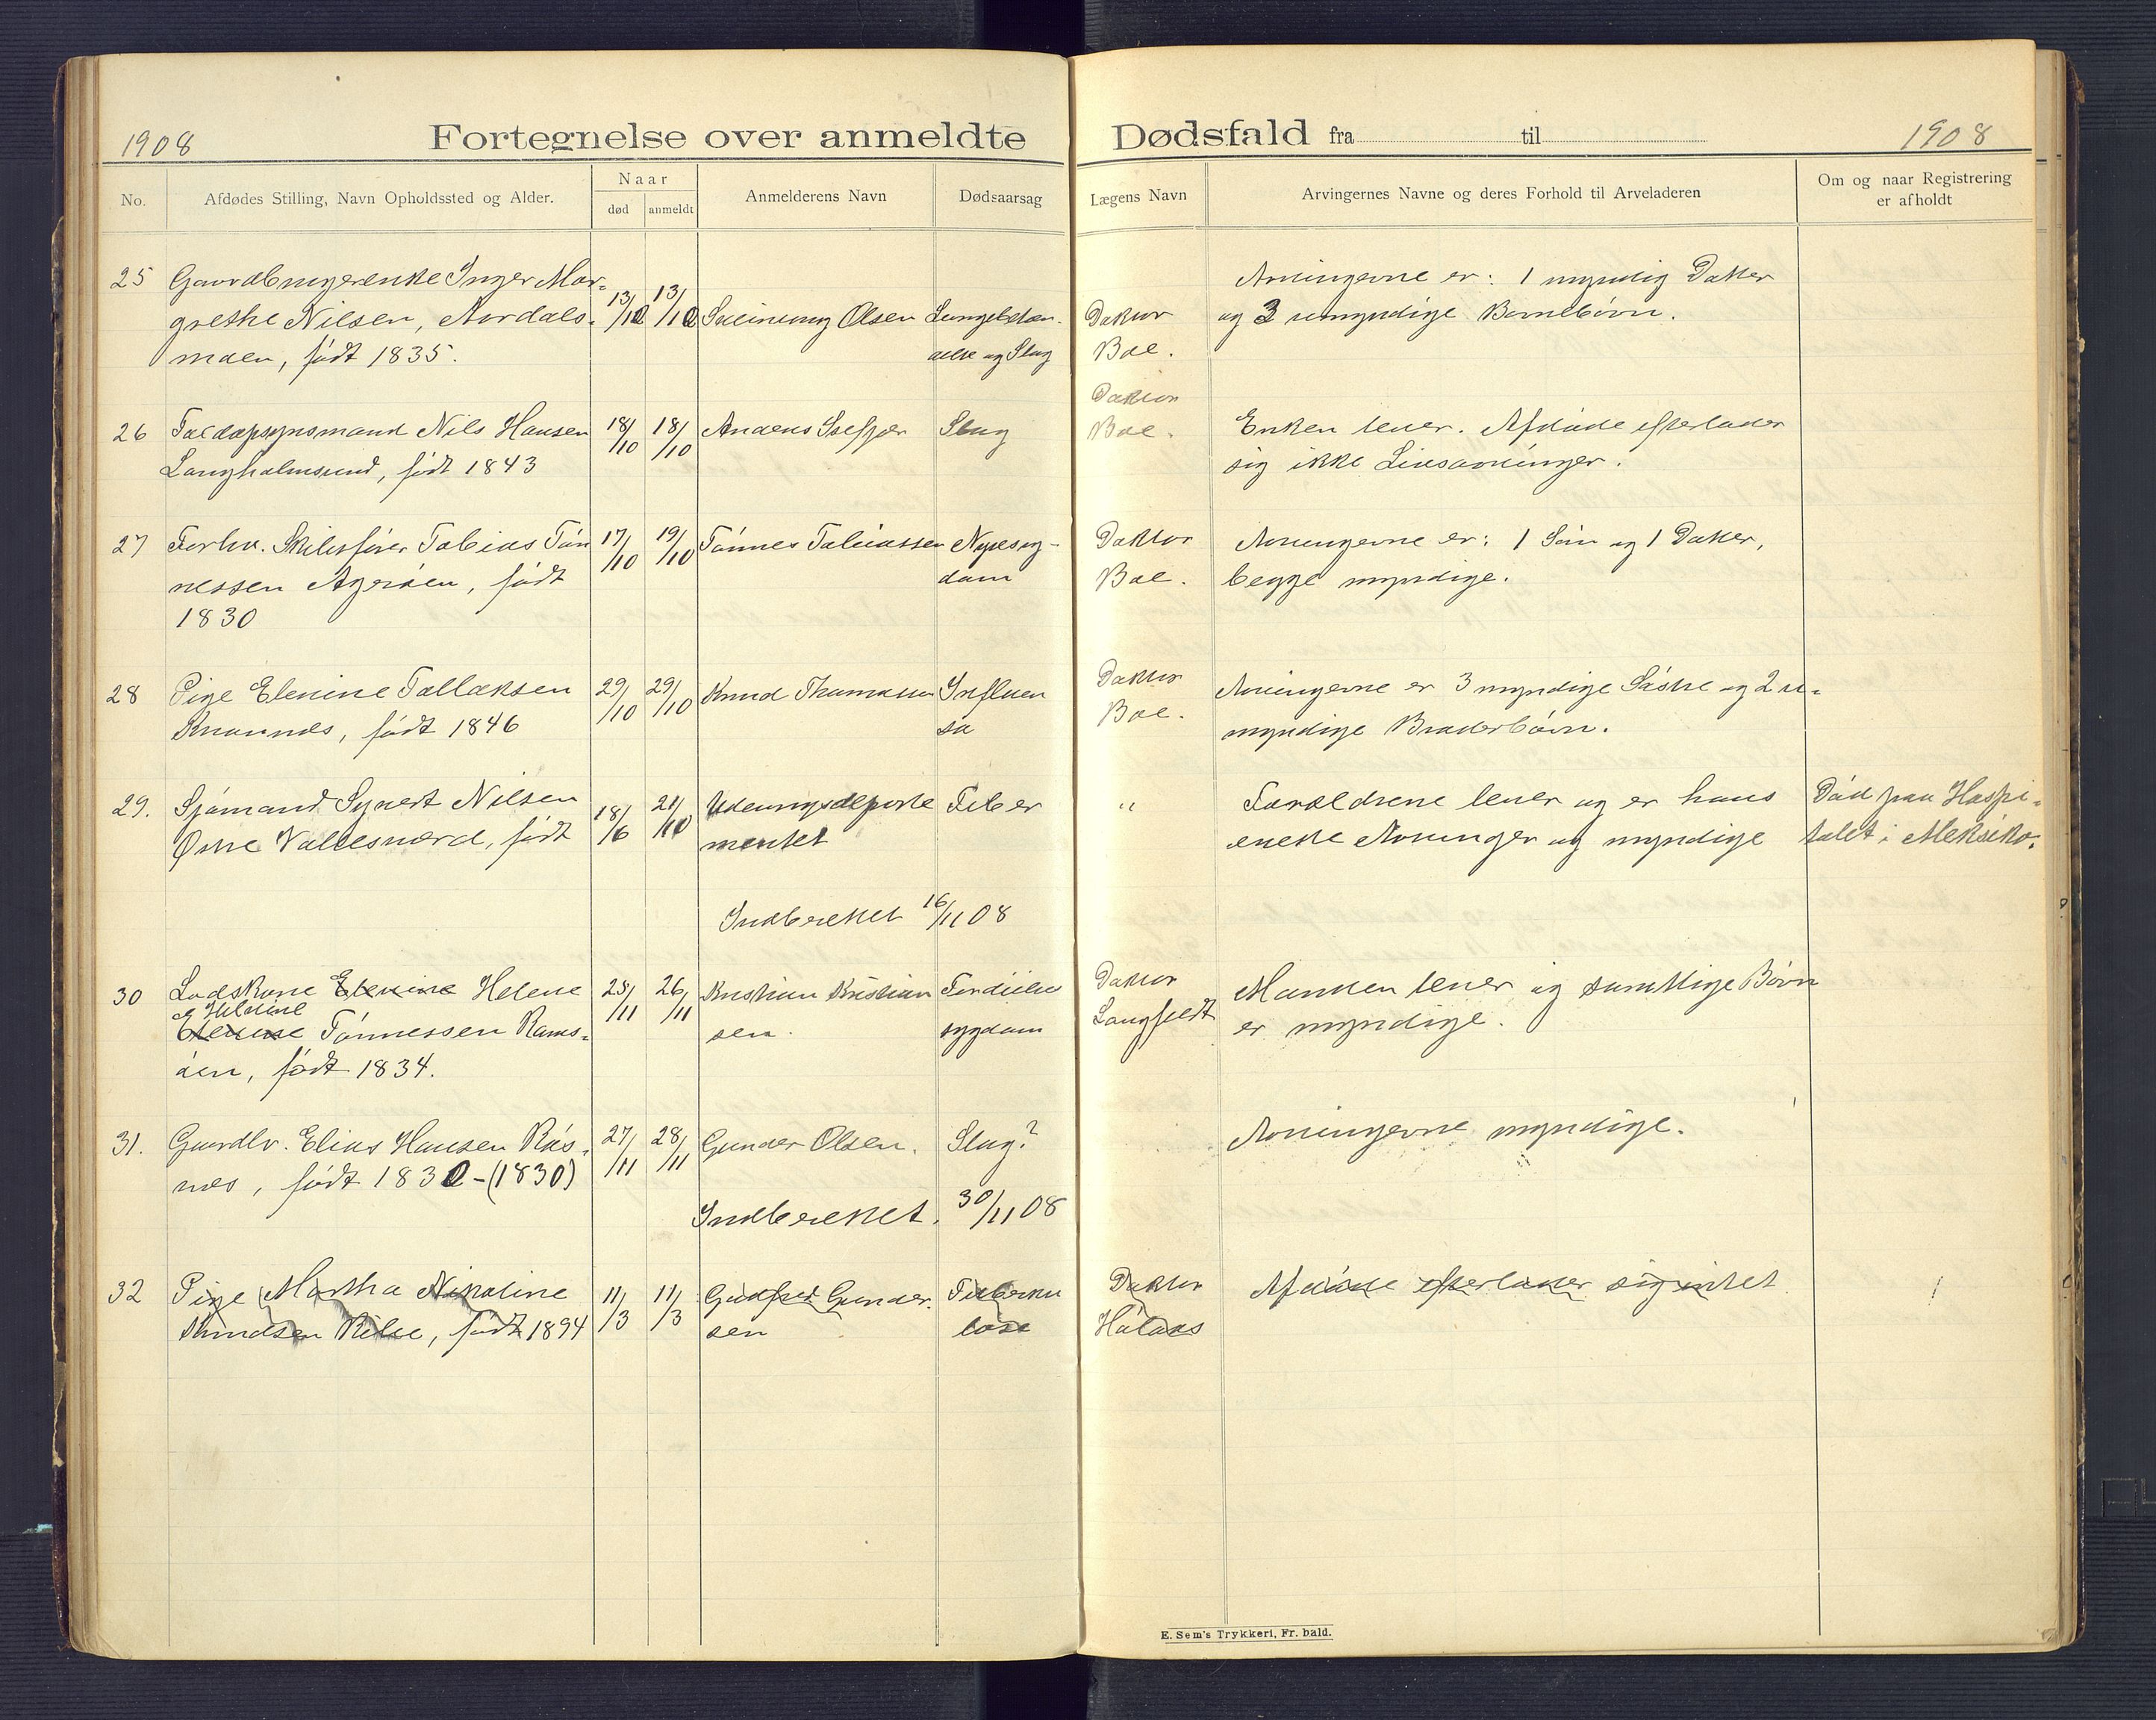 1908
Fortegnelse over anmeldte
Dødsfald fra til
1908
No.
Afdødes Stilling, Navn Opholdssted og Alder.
Naar
død
anmeldt
Anmelderens Navn
Dødsaarsag
Lægens Navn
Arvingernes Navne og deres Forhold til Arveladeren
Om og naar Registrering
er afholdt
25 Gaardbrugerenke Inger Mar-
grethe Nilsen, Aardals-
moen, født 1835.
13/10 13/10 Olsen Lungebetæn-
delse og Slag
Doktor
Boe.
Arvingerne er: 1 myndig Datter
og 3 umyndige Børnebørn.
26 Nils Hansen
Langholmsund, født 1843
18/10 18/10 Anders Slag
Doktor
Boe.
Enken lever. Afdøde efterlader
sig ikke Livsarvinger.
27 Forhv. Skibsfører Tobias Tøn
nessen Agerøen, født
1830
17/10 19/10 Tønnes Tobiassen Nyresyg-
dom
Doktor
Boe.
Arvingerne er: 1 Søn og 1 Datter,
begge myndige.
28 Pige Elenine Tallaksen
født 1846
29/10 29/10 Knud Thomassen Influen
sa
Doktor
Boe.
Arvingerne er 3 myndige Søstre og 2 u-
myndige Broderbørn.
29. Sjømand Syvert Nilsen
Østre Vallesværd, født
18/6 21/10 Udenrigsdeparte
mentet
Feber
"
Forældrene lever og er hans
eneste Arvinger og myndige
Død paa Hospi-
talet i Meksiko.
Indberettet 16/11 08
30 Lodskone Elenine Helene
Helene
Elenine Tønnessen Rams-
øen, født 1834.
25/11 26/11 Kristian Kristian
sen.
sygdom
Doktor
Langfeldt
Manden lever og samtlige Børn
er myndige.
31. Gaardbr. Elias Hansen Røs-
nes, født 1830 - (1830)
27/11 28/11 Gunder Olsen. Slag?
Arvingerne myndige.
Indberettet. 30/11 08
32 Pige Martha Nikoline
Knudsen født 1894
11/3 11/3 Gudfred Gunder-
sen
Tuberku
lose
Doktor
Afdøde efterlader sig intet
E. Sem's Trykkeri, Fr.hald.